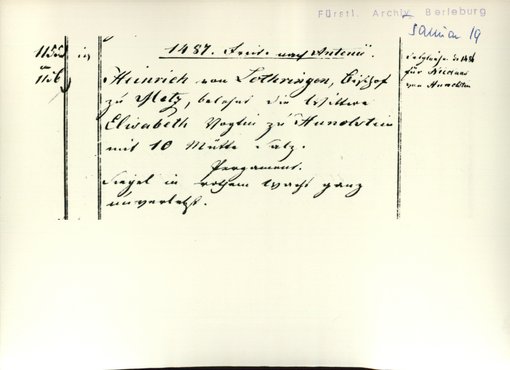 Fürstl. Archiv Berleburg
19
1487. nach Antonii.
Heinrich von Lothringen, Bischof
zu Metz, belehnt die Wittwe
Elisabeth Vogtin zu Hunolstein
mit 10 Mütte Salz.
Pergament.
Siegel in rothem Wachs ganz
unverletzt.
für
von